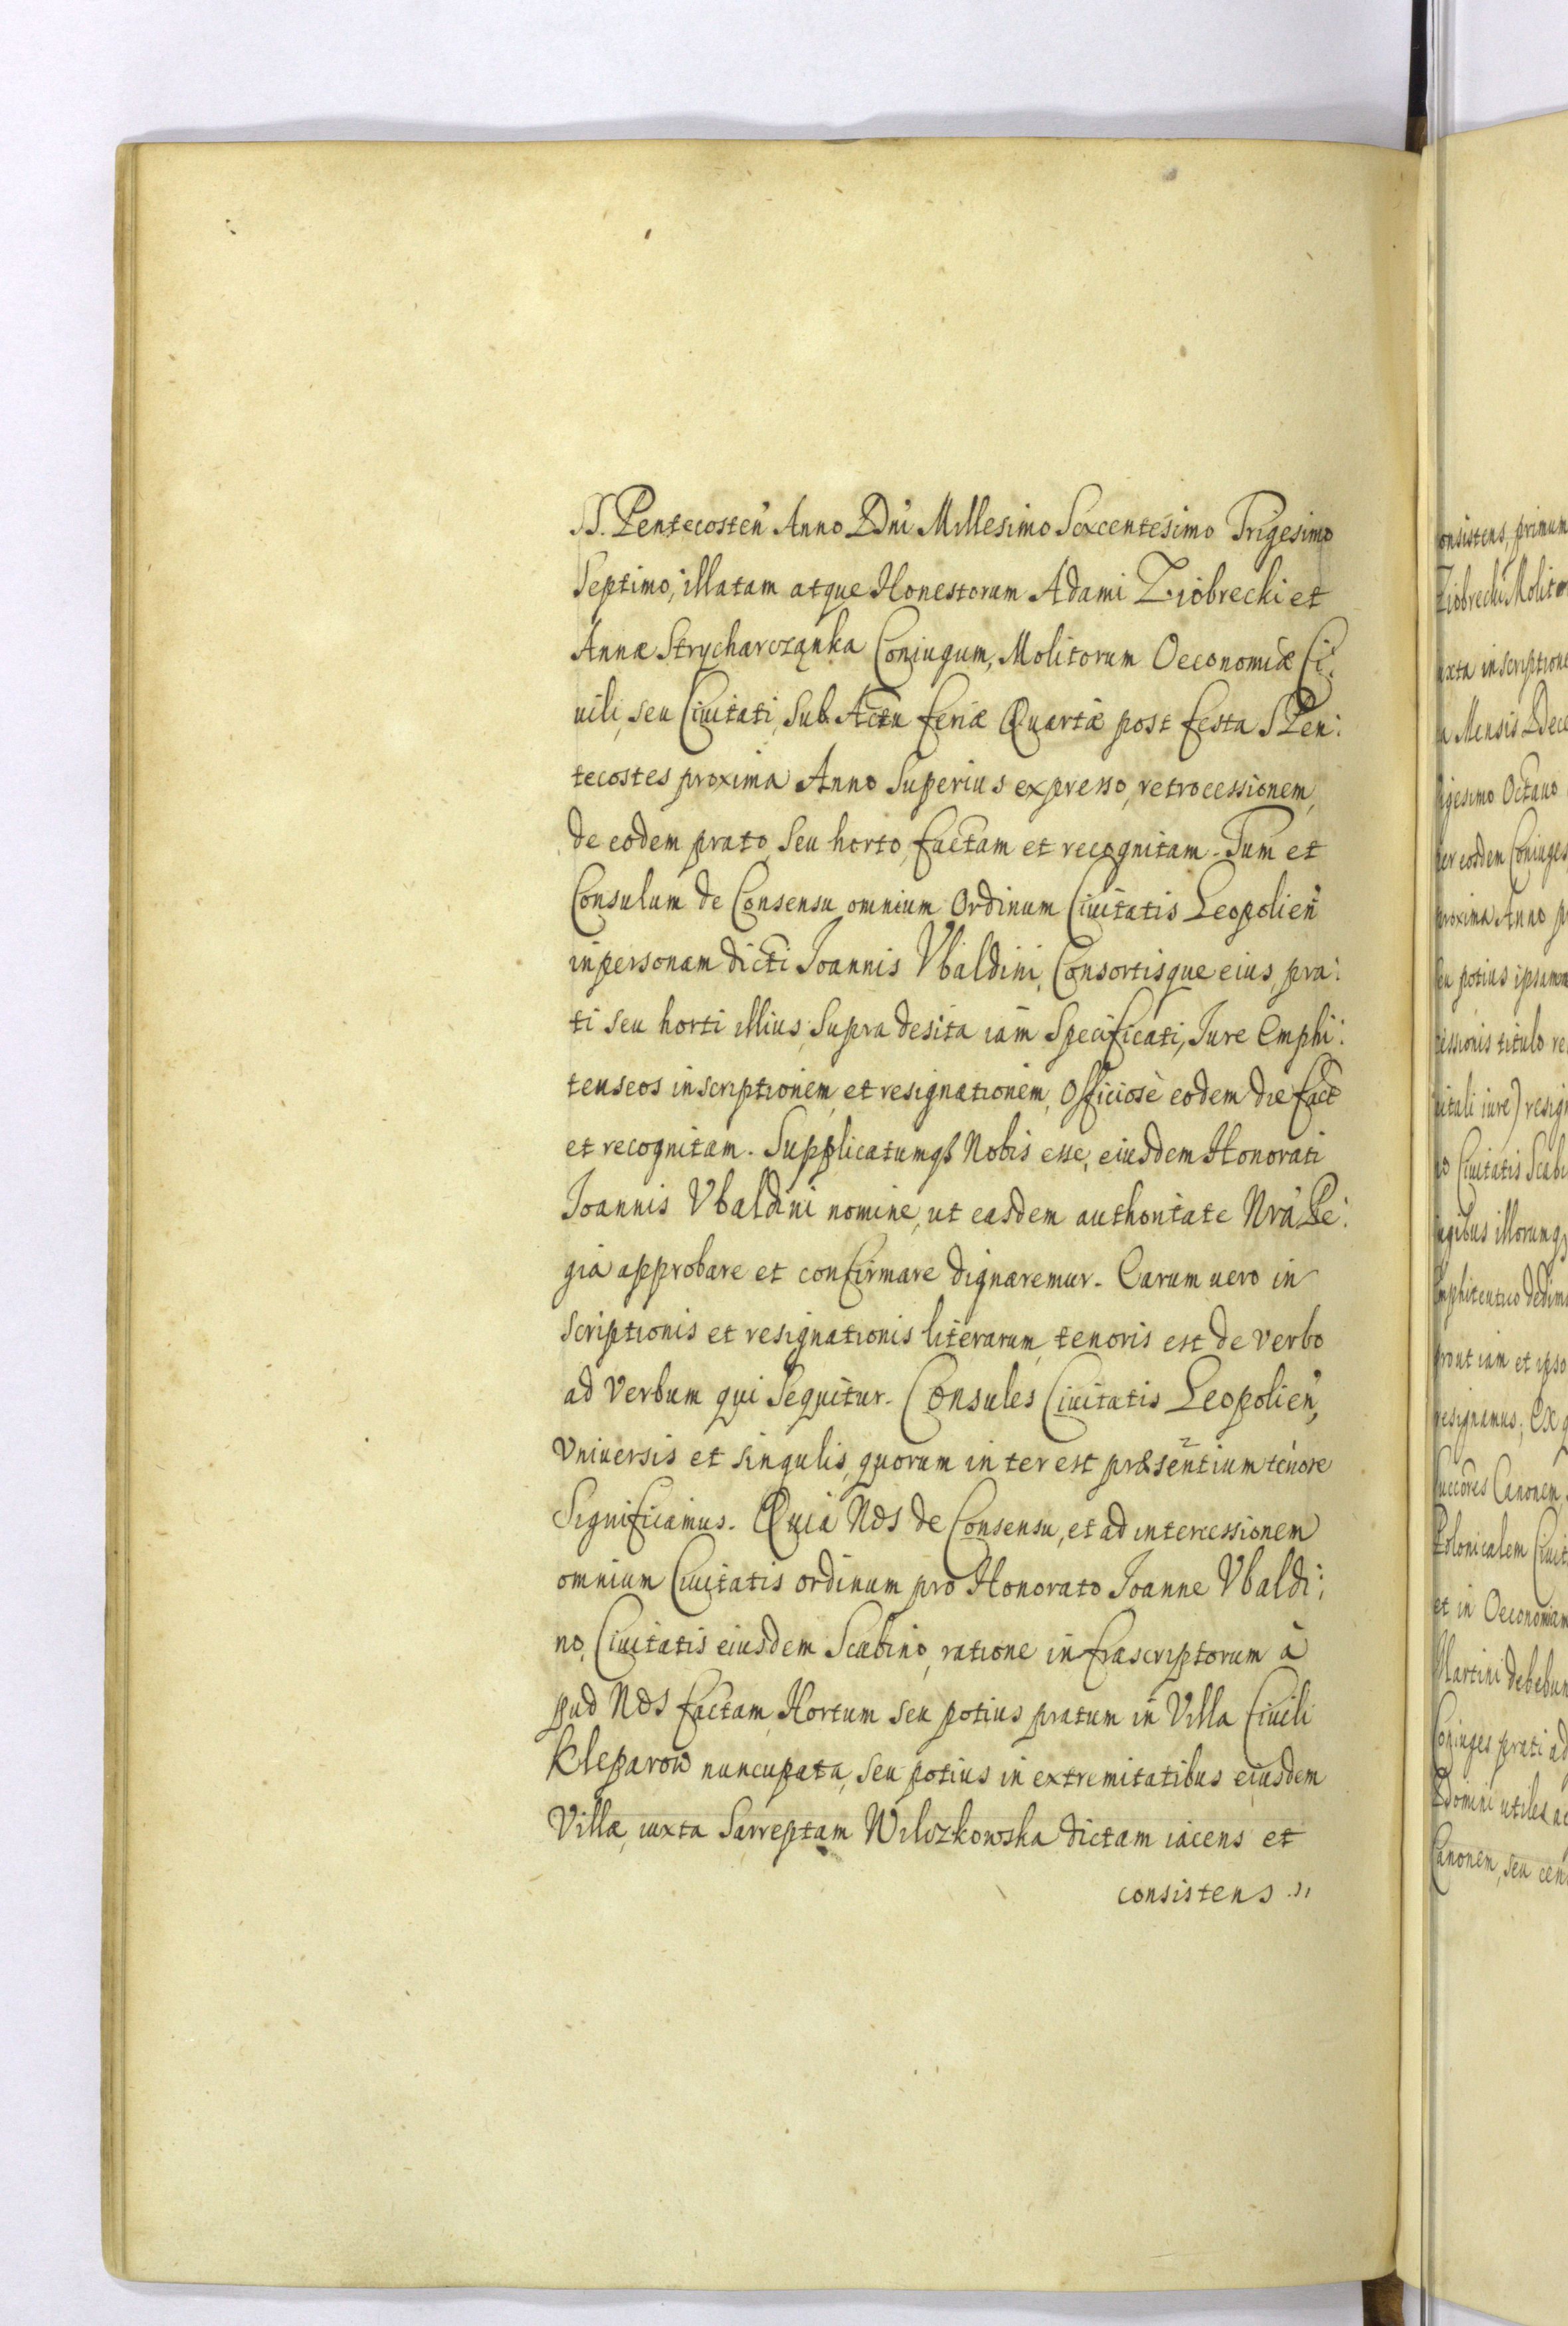 SS. Pentecosteñ Anno Dni Millesimo Sexcentesimo Trigesimo
Septimo, illatam atque Honestorum Adami Ziobrecki et
Annæ Strycharcząnka Coniugum, Molitorum Oeconomiæ Ci:
uili, seu Ciuitati, Sub Actu feriæ Quartæ post festa S Pen:
tecostes proxima Anno Superius expresso, retrocessionem,
de eodem prato, seu horto, factam et recognitam. Tum et
Consulum de Consensu omnium Ordinum Ciuitatis Leopolieñ
in personam dicti Joannis Vbaldini, Consortisque eius, pra:
ti seu horti illius, Supra desita iam Specificati, Jure Emphi:
teuseos inscriptionem, et resignationem, Officiosè eodem die fact
et recognitam. Supplicatumqȝ Nobis esse, eiusdem Honorati
Joannis Vbaldini nomine, ut easdem authoritate Nrâ Re:
gia approbare et confirmare dignaremur. Earum uero in
scriptionis et resignationis literarum, tenoris est de verbo
ad Verbum qui Sequitur. Consules Ciuitatis Leopolieñ,
Vniuersis et singulis, quorum interest præsentium tenore
Significamus. Quia Nos de Consensu, et ad intercessionem
omnium Ciuitatis ordinum pro Honorato Joanne Vbaldi:
no, Ciuitatis eiusdem Scabino, ratione infrascriptorum à
pud Nos factam, Hortum seu potius pratum in Villa Ciuili
Kleparow nuncupata, seu potius in extremitatibus eiusdem
Villæ, iuxta Sarreptam Wilczkowska dictam iacens et
consistens
onsistens, primum
Ziobrecki Molitor
uxta inscriptione
a Mensis Dece
igesimo Octauo
per eosdem Coniuges
proxima Anno p
seu potius ipsamm
cessionis titulo re
uitali iure) resign
no Ciuitatis Scabi
ugibus illorumq
Emphiteutico dedimu
prout iam et ipso
resignamus; Ex q
succores Canonem
Polonicalem Ciuit
et in Oeconomiam
Martini debebun
Coniuges prati ad
Domini utiles ac
Canonem, seu cen